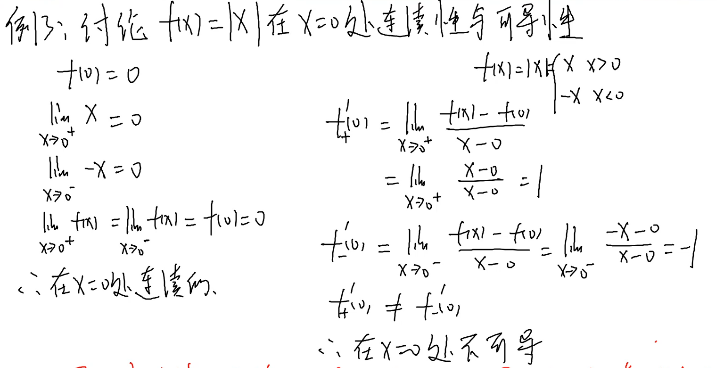 例3: 讨论 f(x)=|x| 在 x=0处连续性与可导性
f(0)=0
lim x→0⁺ x = 0
lim x→0⁻ -x = 0
lim x→0⁺ f(x) = lim x→0⁻ f(x) = f(0) = 0
∴ 在 x=0处连续的.
f(x)=|x|={ x x>0
-x x<0
f'₊(0) = lim x→0⁺ (f(x)-f(0))/(x-0)
= lim x→0⁺ (x-0)/(x-0) = 1
f'₋(0) = lim x→0⁻ (f(x)-f(0))/(x-0) = lim x→0⁻ (-x-0)/(x-0) = -1
f'₊(0) ≠ f'₋(0)
∴ 在 x=0处不可导